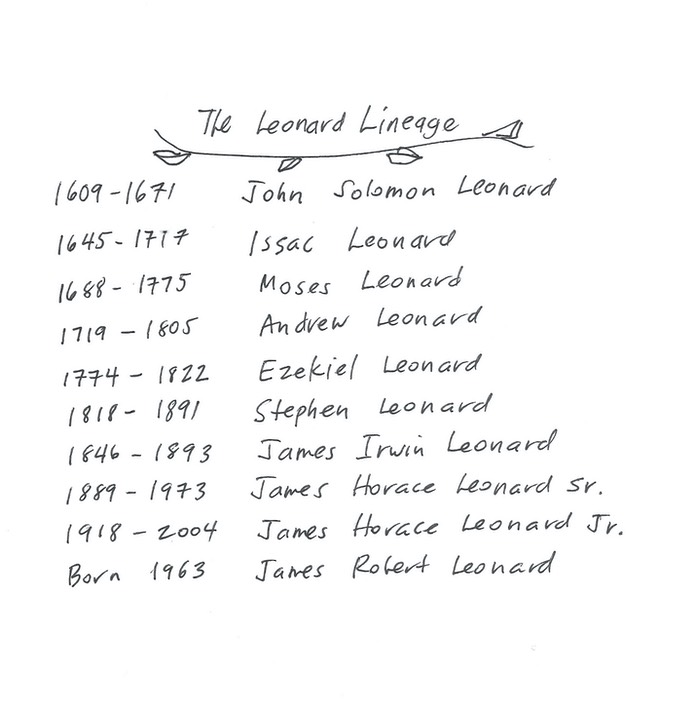 The Leonard Lineage
1609-1671 John Solomon Leonard
1645-1717 Issac Leonard
1688-1775 Moses Leonard
1719-1805 Andrew Leonard
1774-1822 Ezekiel Leonard
1818-1891 Stephen Leonard
1846-1893 James Irwin Leonard
1889-1973 James Horace Leonard Sr.
1918-2004 James Horace Leonard Jr.
Born 1963 James Robert Leonard